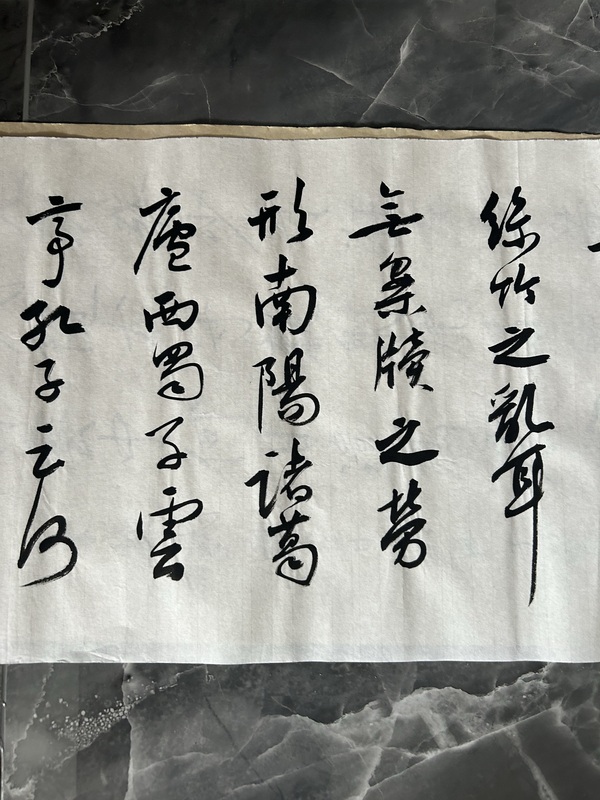 絲竹之亂耳
無案牘之勞
形南陽諸葛
廬西蜀子雲
亭孔子云何